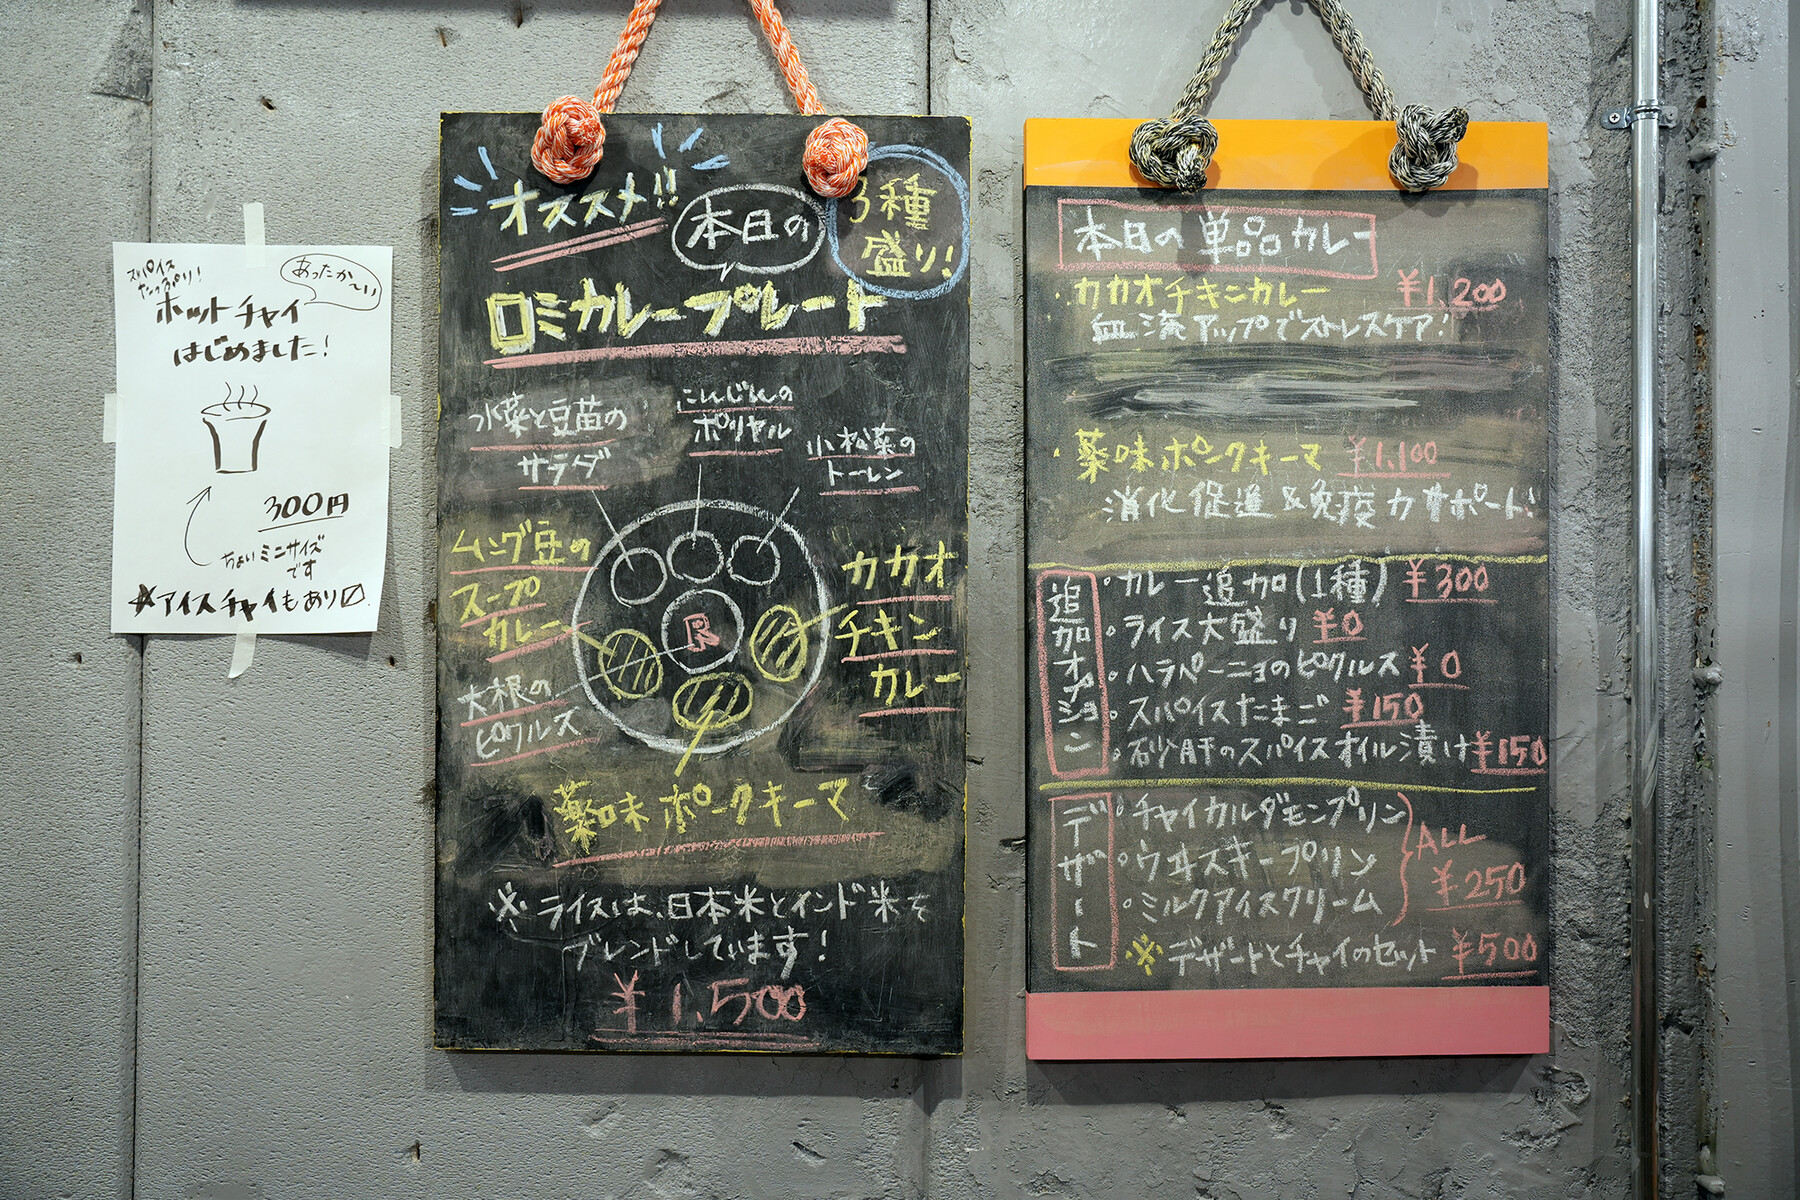 スパイス
たっぷり!
あったか〜い
ホットチャイ
はじめました!
300円
ちょいミニサイズ
です
☆アイスチャイもあり〼.
オススメ!!
本日の
3種
盛り!
ロミカレープレート
水菜と豆苗の
サラダ
にんじんの
ポリヤル
小松菜の
トーレン
ムング豆の
スープ
カレー
カカオ
チキン
カレー
大根の
ピクルス
R
薬味ポークキーマ
※ライスは、日本米とインド米を
ブレンドしています!
¥1,500
本日の単品カレー
・カカオチキンカレー ¥1,200
血流アップでストレスケア!
・薬味ポークキーマ ¥1,100
消化促進&免疫力サポート!
追加オプション
・カレー追加(1種) ¥300
・ライス大盛り ¥0
・ハラペーニョのピクルス ¥0
・スパイスたまご ¥150
・砂肝のスパイスオイル漬け ¥150
デザート
・チャイカルダモンプリン
・ウヰスキープリン
・ミルクアイスクリーム
ALL
¥250
※デザートとチャイのセット ¥500